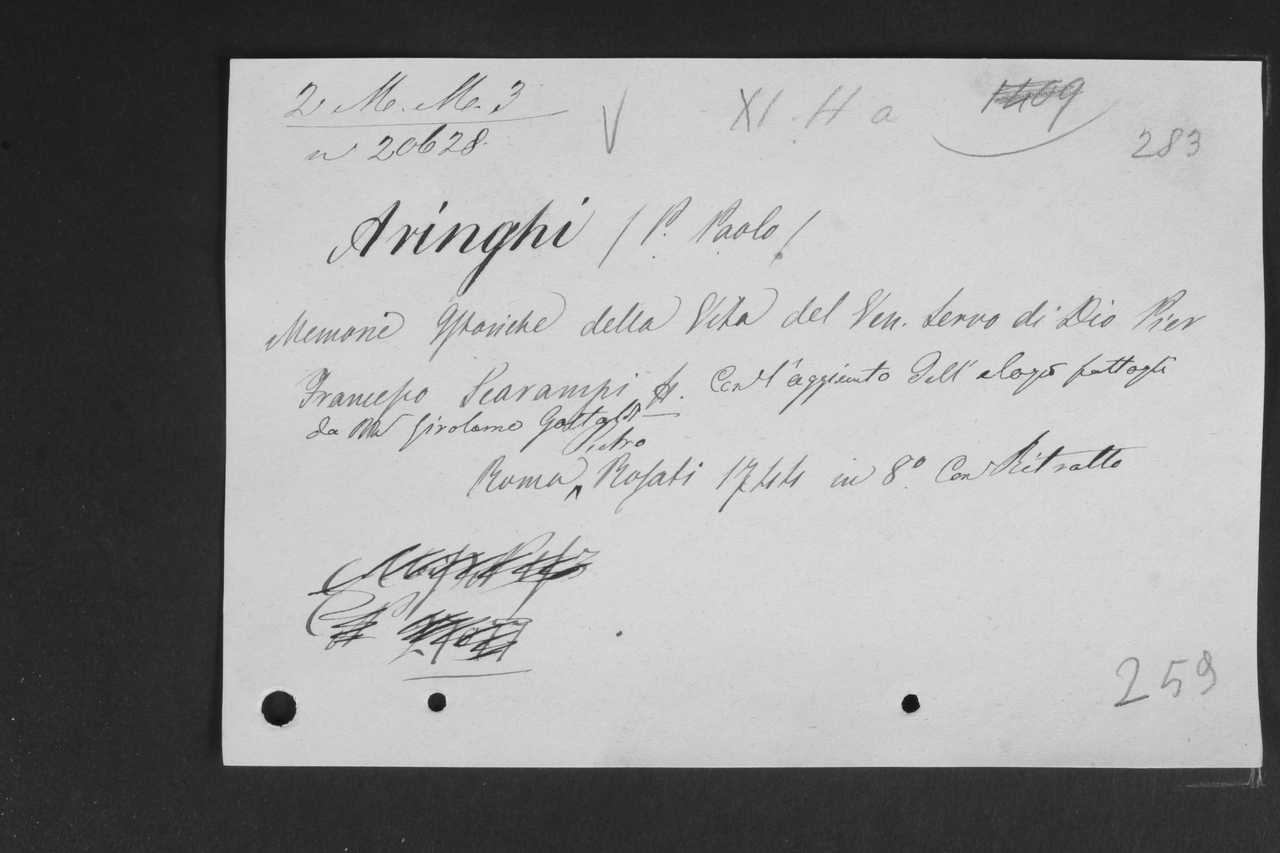 2 M. M. 3 V XI. H a 1409
n 20628. 283
Aringhi / P. Paolo /
Memorie Istoriche della Vita del Ven. Servo di Dio Pier
Francesco Scarampi &. Con l'aggiunto dell'elogio fattogli
da Girolamo
Pietro
Roma ^ Rosati 1744 in 8º. Con Ritratto
259